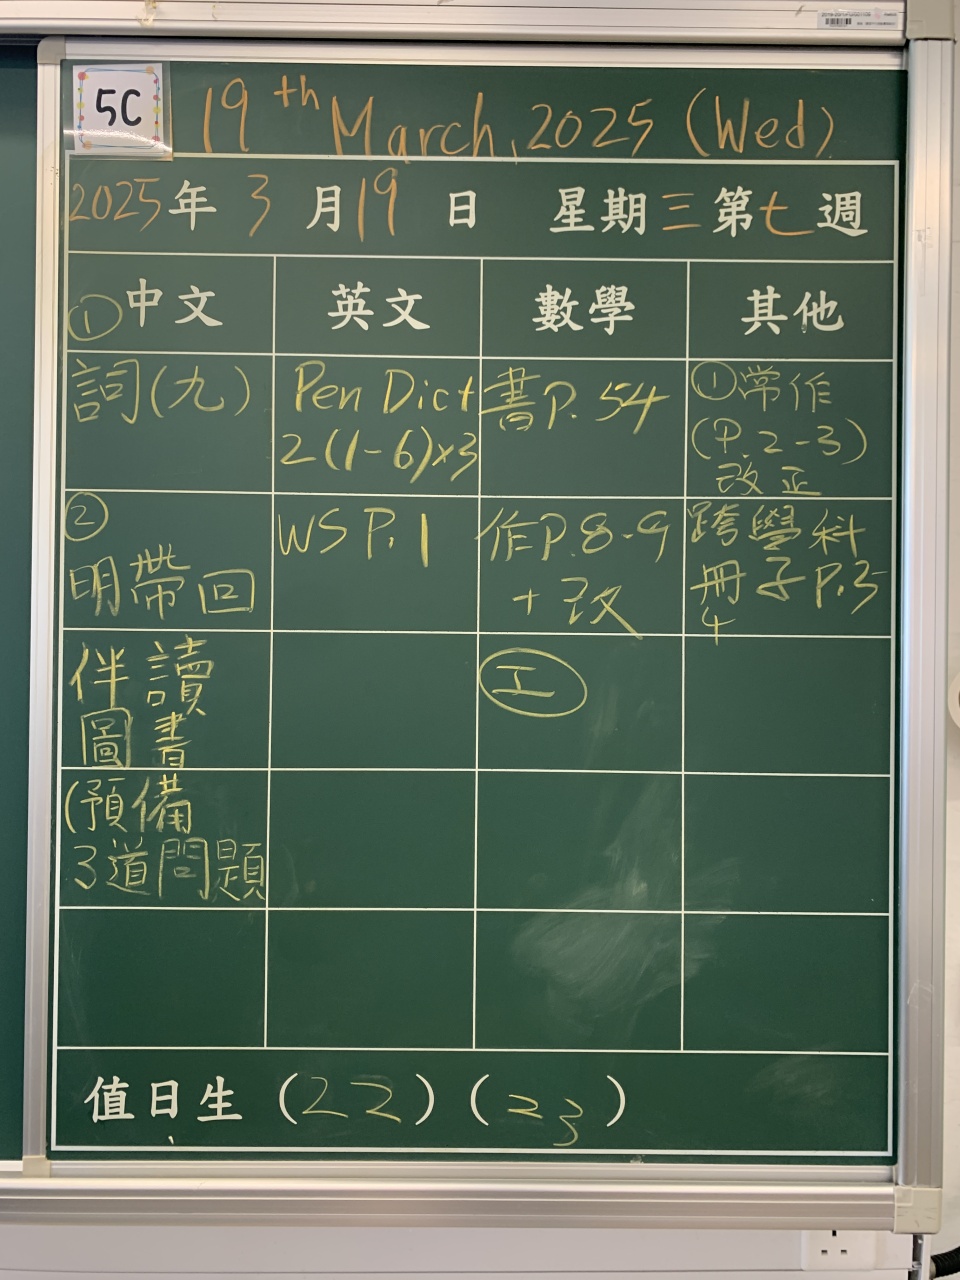 5C
19th March, 2025 (Wed)
2025年 3月19日 星期三第七週
①中文
英文
數學
其他
詞(九)
Pen Dict
2(1-6)x3
書P. 54
①常作
(P. 2-3)
改正
②
明帶回
WS P. 1
作P. 8-9
+改
跨學科
冊子P.3-
4
伴讀
圖書
工
(預備
3道問題
值日生 (22) (23)